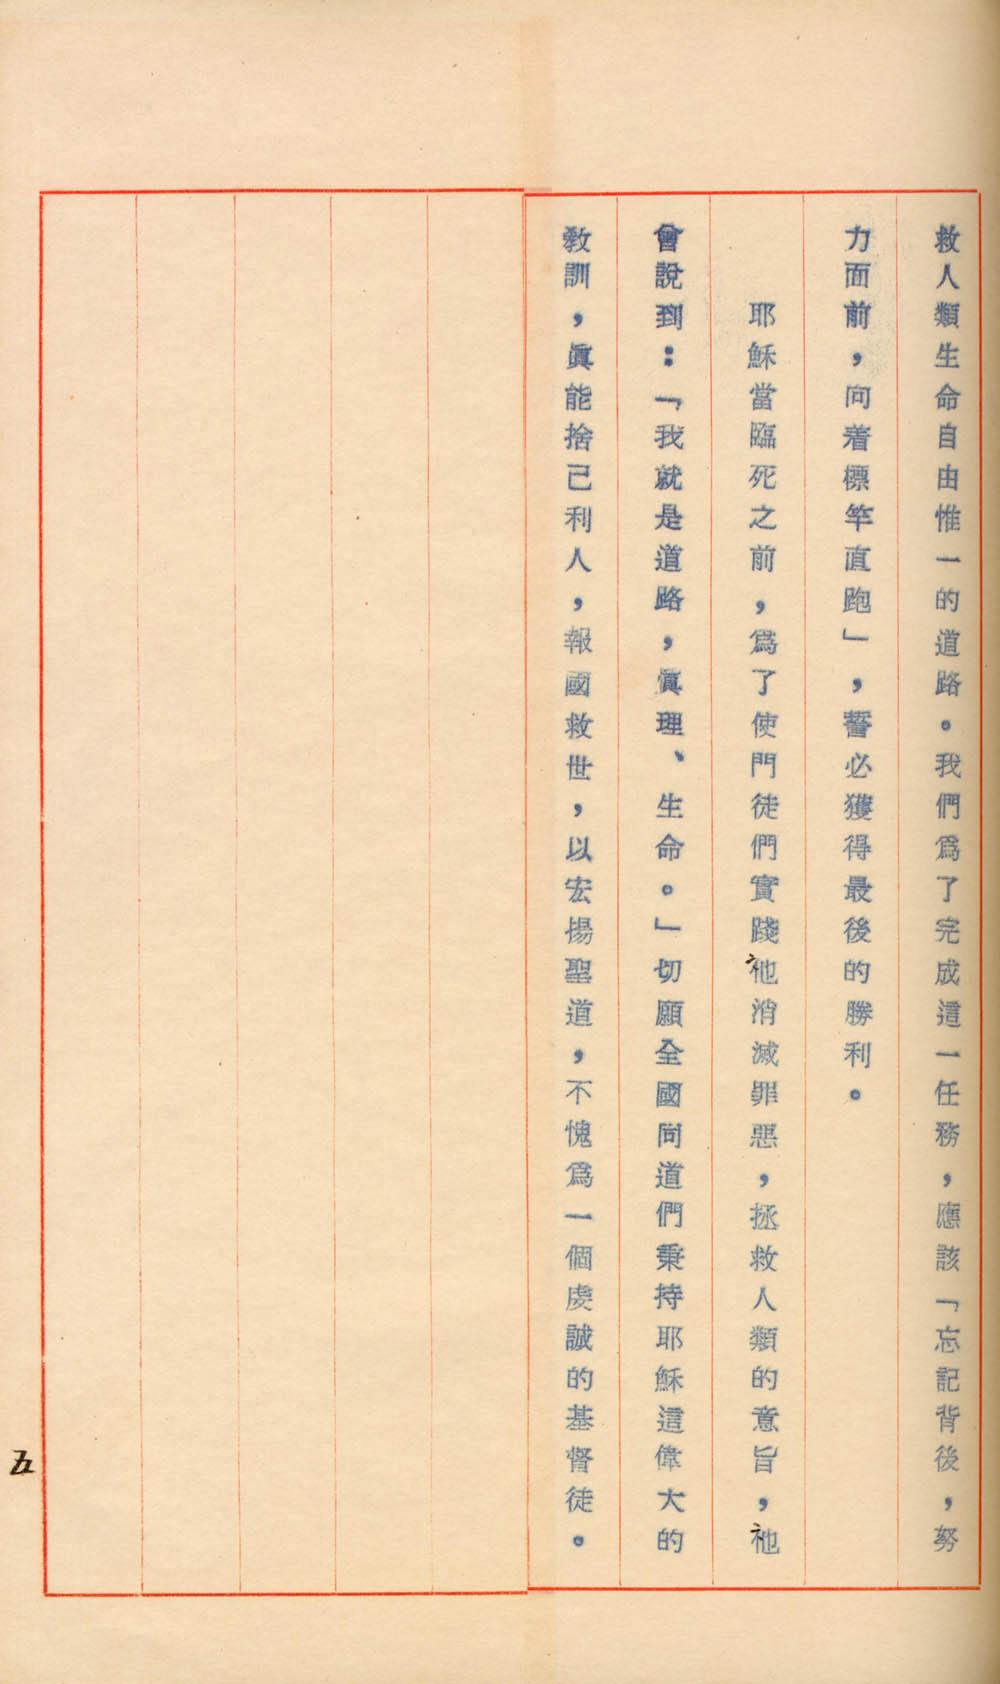 救人類生命自由惟一的道路。我們爲了完成這一任務，應該「忘記背後，努
力面前，向着標竿直跑」，誓必獲得最後的勝利。
耶穌當臨死之前，爲了使門徒們實踐祂消滅罪惡，拯救人類的意旨，祂
曾說到：「我就是道路，眞理、生命。」切願全國同道們秉持耶穌這偉大的
敎訓，眞能捨己利人，報國救世，以宏揚聖道，不愧爲一個虔誠的基督徒。
五